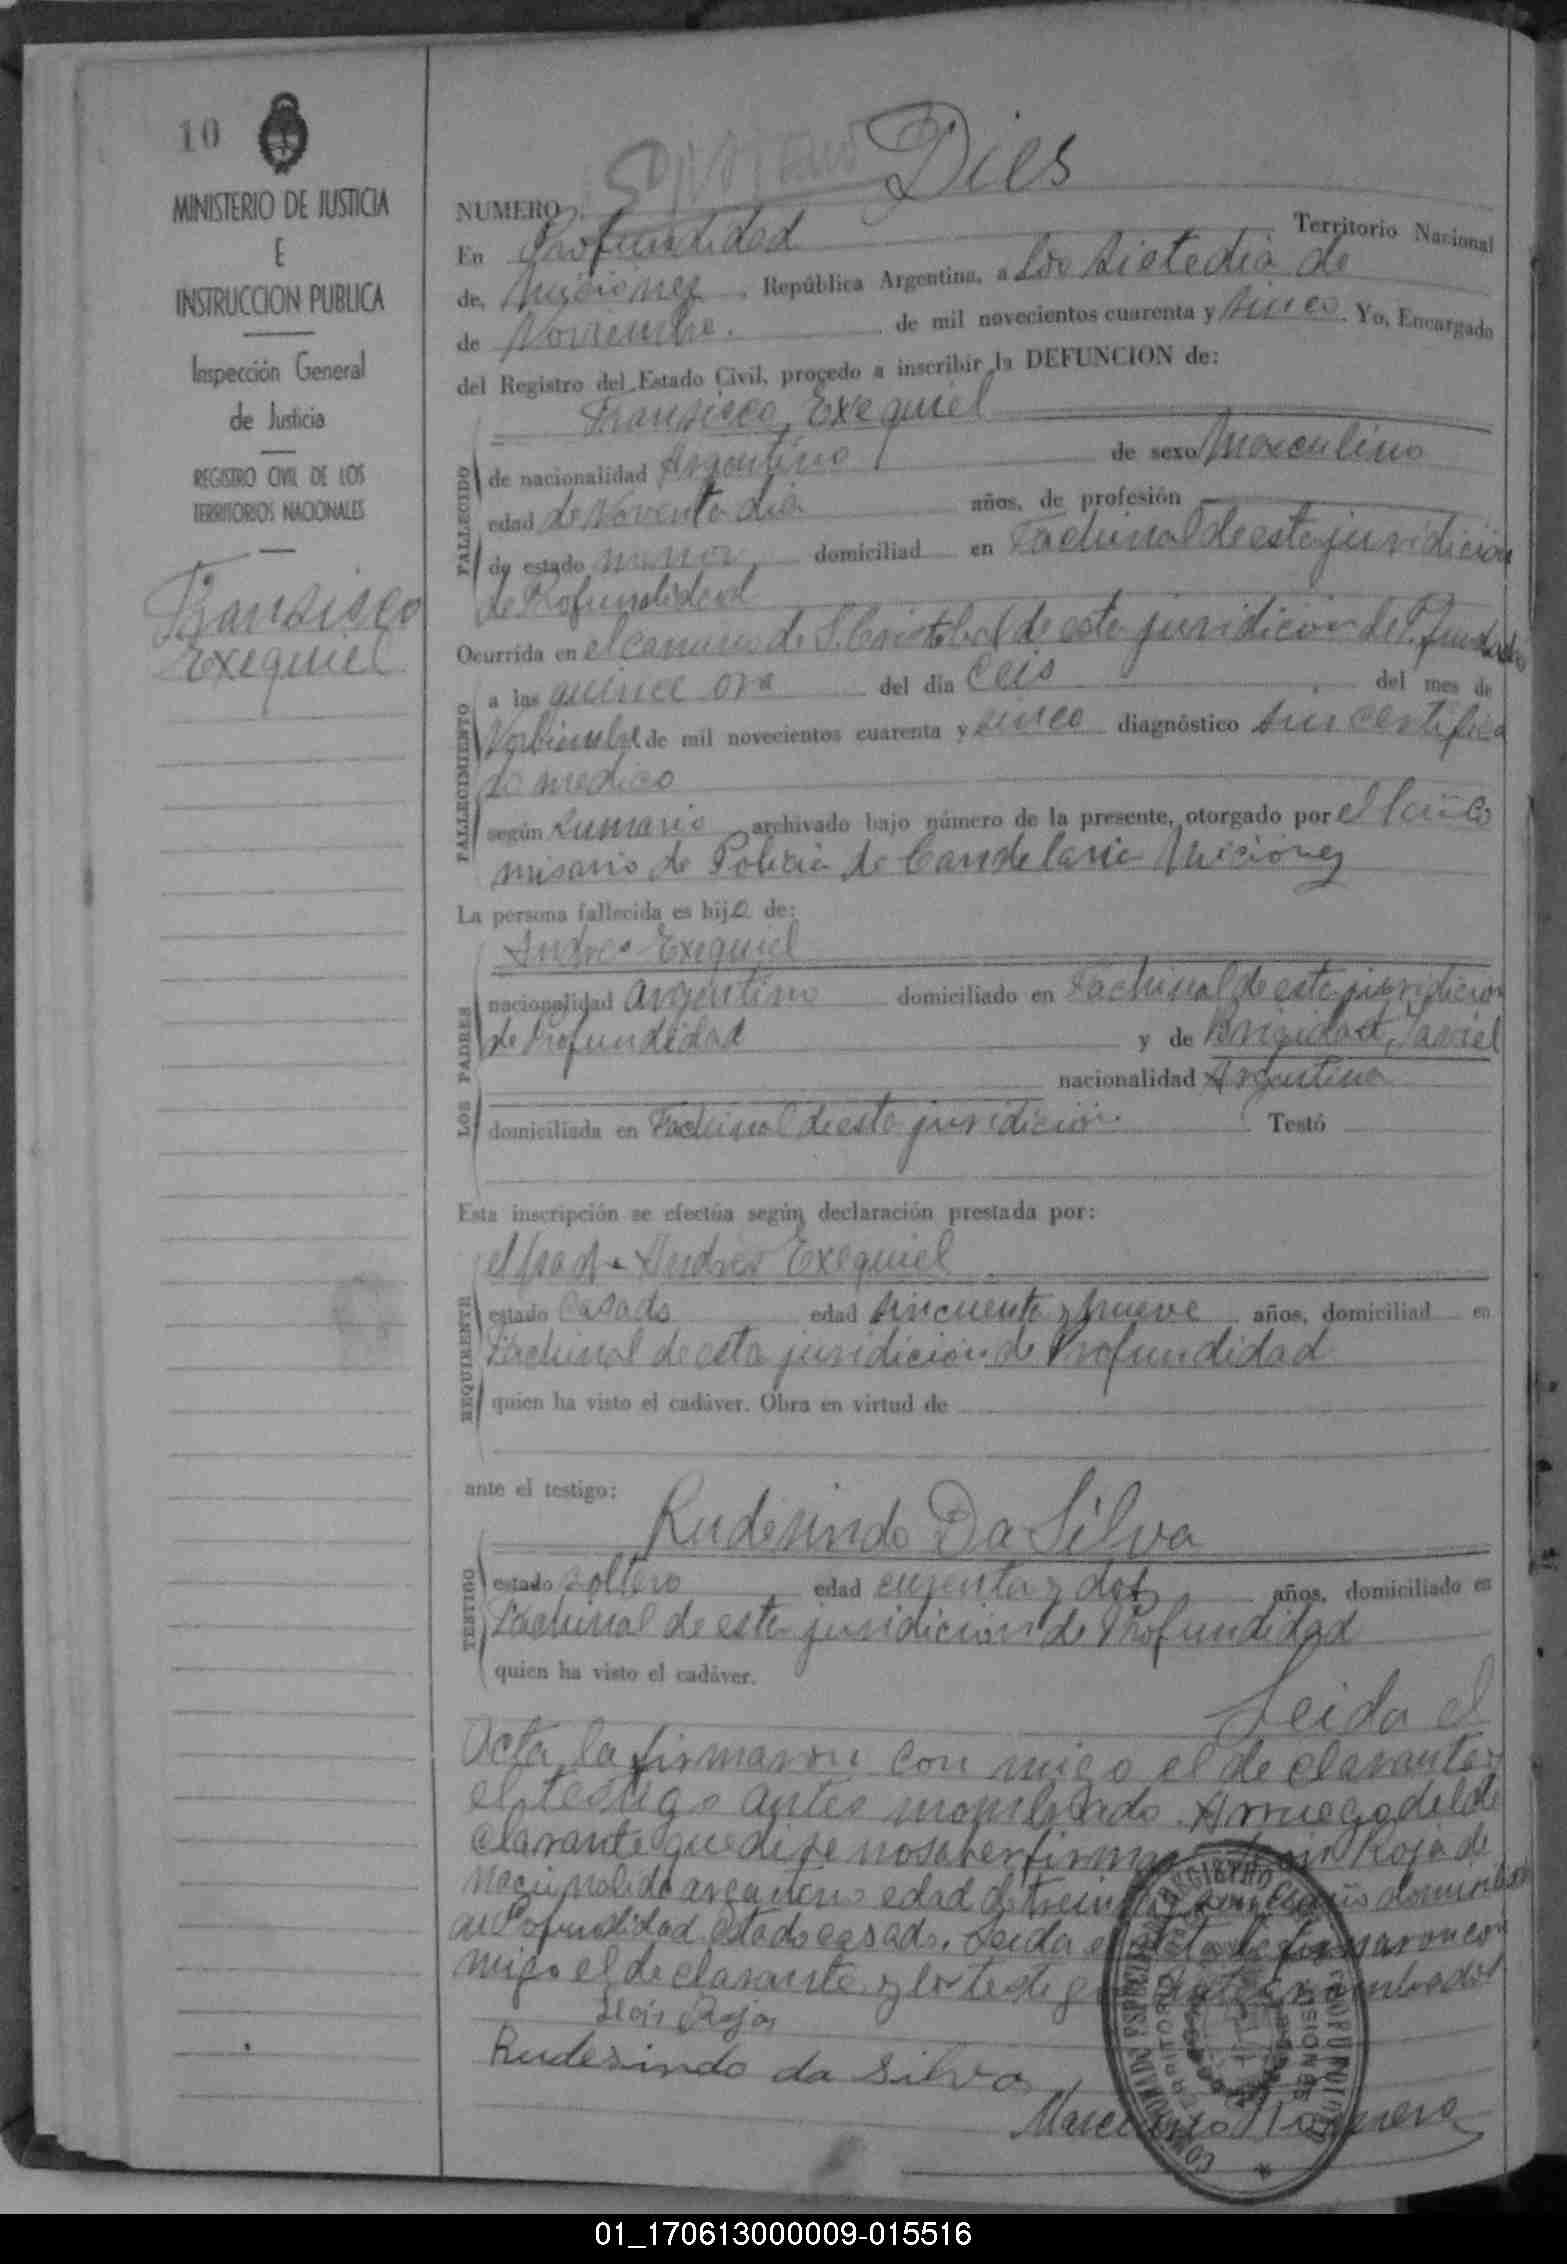 10
MINISTERIO DE JUSTICIA
E
INSTRUCCION PUBLICA
Inspección General
de Justicia
REGISTRO CIVIL DE LOS
TERRITORIOS NACIONALES
Fransisco
Exequiel
NUMERO Dies
En Profundidad Territorio Nacional
de, Miciones, República Argentina, a los siete dia de
de Noviembre. de mil novecientos cuarenta y sinco. Yo, Encargado
del Registro del Estado Civil, procedo a inscribir la DEFUNCION de:
Fransisco Exequiel
FALLECIDO
de nacionalidad Argentino de sexo Masculino
edad de Noventa dia años, de profesión
de estado menor domiciliad en Fachinal de esta juridicion
de Profundidad
Ocurrida en el camino de S. Cristobal de esta juridicion de Profundidad
FALLECIMIENTO
a las quince ora del día Ceis del mes de
Novbiembre de mil novecientos cuarenta y sinco diagnóstico sin certifica
do medico
según sumario archivado bajo número de la presente, otorgado por el
misario de Policia de Candelaria Miciones
La persona fallecida es hijo de:
Andres Exequiel
LOS PADRES
nacionalidad argentino domiciliado en Fachinal de esta juridicion
de Profundidad y de Brigida
nacionalidad Argentina
domiciliada en Fachinal de esta juridicion. Testó
Esta inscripción se efectúa según declaración prestada por:
el padre Andres Exequiel
REQUIRENTE
estado Casado edad sincuenta y nueve años, domiciliad en
Fachinal de esta juridicion de Profundidad
quien ha visto el cadáver. Obra en virtud de
ante el testigo:
Rudesindo Da Silva
TESTIGO
estado soltero edad cuarenta y dos años, domiciliado en
Fachinal de esta juridicion de Profundidad
quien ha visto el cadáver.
Leida el
Acta la firmaron con migo el declarante y
el testigo antes nombrado. Arruego del de
clarante que dise no saber firmar Rojas de
nacionalida argentino edad de treinta años domiciliado
en Profundidad estado casado. Leida el acta la firmaron con
migo el declarante y los testigos antes nombrados
Rojas
Rudesindo da Silva
REGISTRO CIVIL
TERRITORIO
MISIONES
01_170613000009-015516